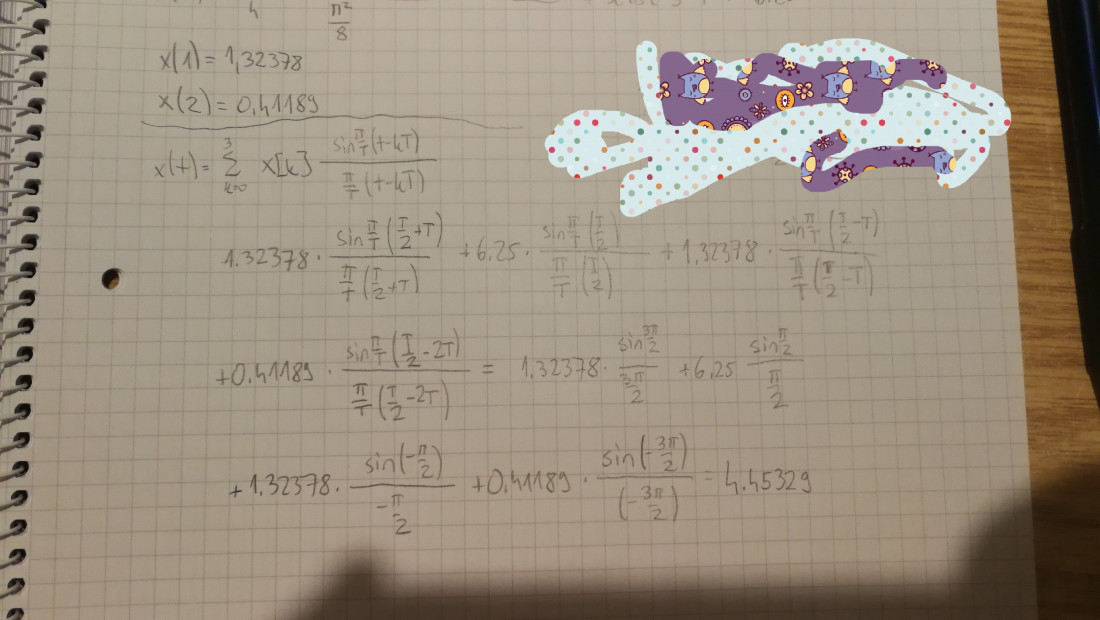 π²/8
x(1) = 1,32378
x(2) = 0,41189
x(t) = Σ_{k=0}^{3} x[k] (sin π/T (t-kT))/(π/T (t-kT))
1.32378 · (sin π/T (T/2+T))/(π/T (T/2+T)) + 6.25 · (sin π/T (T/2))/(π/T (T/2)) + 1.32378 · (sin π/T (T/2-T))/(π/T (π/2-T))
+0.41189 · (sin π/T (T/2-2T))/(π/T (T/2-2T)) = 1.32378 · (sin 3π/2)/(3π/2) + 6.25 (sin π/2)/(π/2)
+1.32378 · (sin(-π/2))/(-π/2) + 0,41189 · (sin(-3π/2))/((-3π/2)) = 4.45329